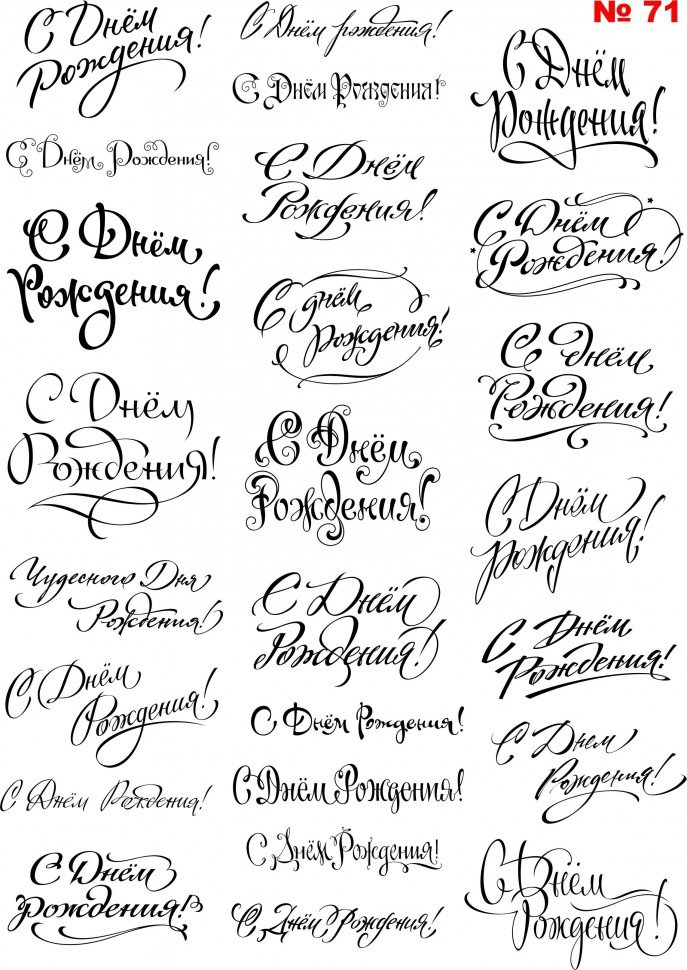 С Днём
Рождения!
С Днём Рождения!
С Днём
Рождения!
С Днём
Рождения!
Чудесного Дня
Рождения!
С Днём
Рождения!
С Днём Рождения!
С Днём
Рождения!
С Днём рождения!
С Днём Рождения!
С Днём
Рождения!
С днём
Рождения!
С Днём
Рождения!
С Днём
Рождения!
С Днём Рождения!
С Днём Рождения!
С Днём Рождения!
С Днём Рождения!
№ 71
С Днём
Рождения!
С Днём
Рождения!
С днём
Рождения!
С Днём
Рождения!
С Днём
Рождения!
С Днем
Рождения!
С Днём
Рождения!